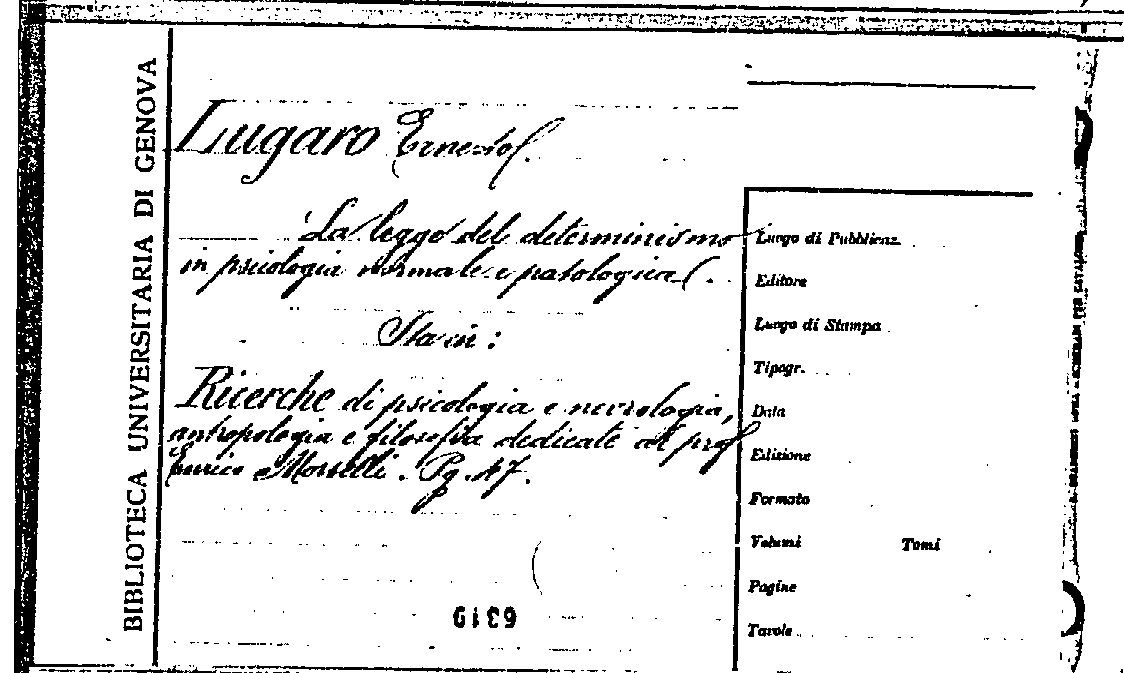 BIBLIOTECA UNIVERSITARIA DI GENOVA
Lugaro Ernesto
La legge del determinismo
in psicologia normale e patologica.
Sta in:
Ricerche di psicologia e nevrologia,
antropologia e filosofia dedicate al prof
Enrico Morselli. Pg. 47.
Luogo di Pubblicaz.
Editore
Luogo di Stampa
Tipogr.
Data
Edizione
Formato
Volumi Tomi
Pagine
Tavole